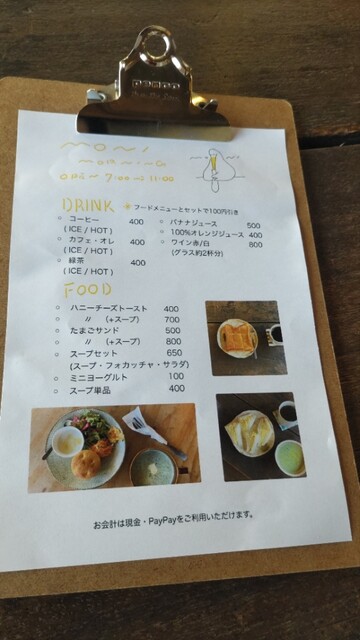 MONI
MORNING
OHis〜 7:00 → 11:00
DRINK ＊フードメニューとセットで100円引き
○ コーヒー 400
( ICE / HOT )
○ カフェ・オレ 400
( ICE / HOT )
○ 緑茶 400
( ICE / HOT )
○ バナナジュース 500
○ 100%オレンジジュース 400
○ ワイン赤/白 800
(グラス約2杯分)
FOOD
○ ハニーチーズトースト 400
○ 〃 (+スープ) 700
○ たまごサンド 500
○ 〃 (+スープ) 800
○ スープセット 650
(スープ・フォカッチャ・サラダ)
○ ミニヨーグルト 100
○ スープ単品 400
お会計は現金・PayPayをご利用いただけます。